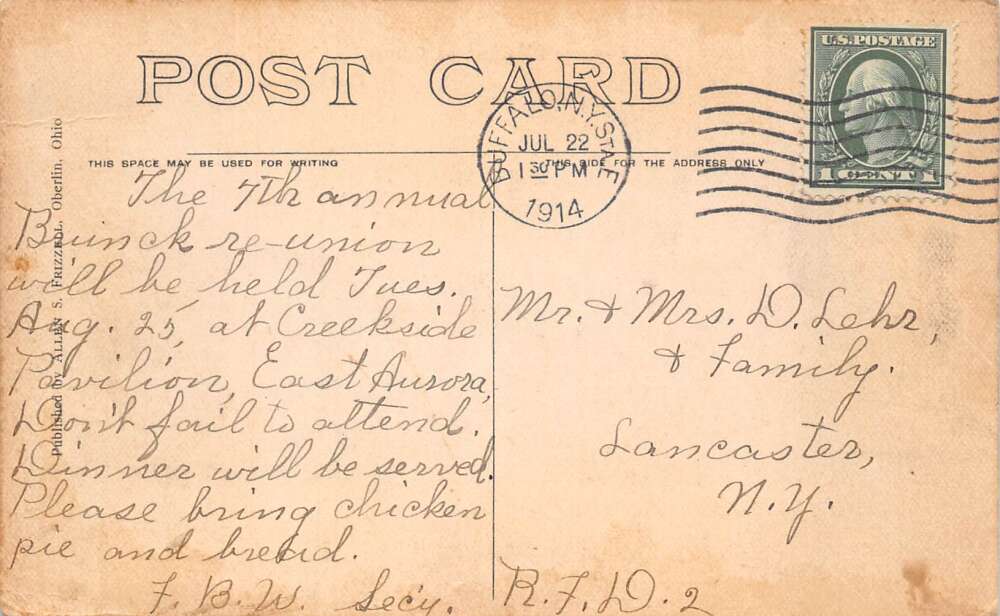 POST CARD
THIS SPACE MAY BE USED FOR WRITING
THIS SIDE FOR THE ADDRESS ONLY
BUFFALO, N.Y. STATE
JUL 22
1 30 PM
1914
U.S. POSTAGE
1 CENT 1
Published by ALLEN S. FRIZZELL, Oberlin, Ohio
The 7th annual
Bruinck re-union
will be held Tues.
Aug. 25, at Creekside
Pavilion, East Aurora,
Don't fail to attend.
Dinner will be served.
Please bring chicken
pie and bread.
F. B. W. Secy.
Mr. & Mrs. D. Lehr,
& Family.
Lancaster,
N.Y.
R.F.D. 2